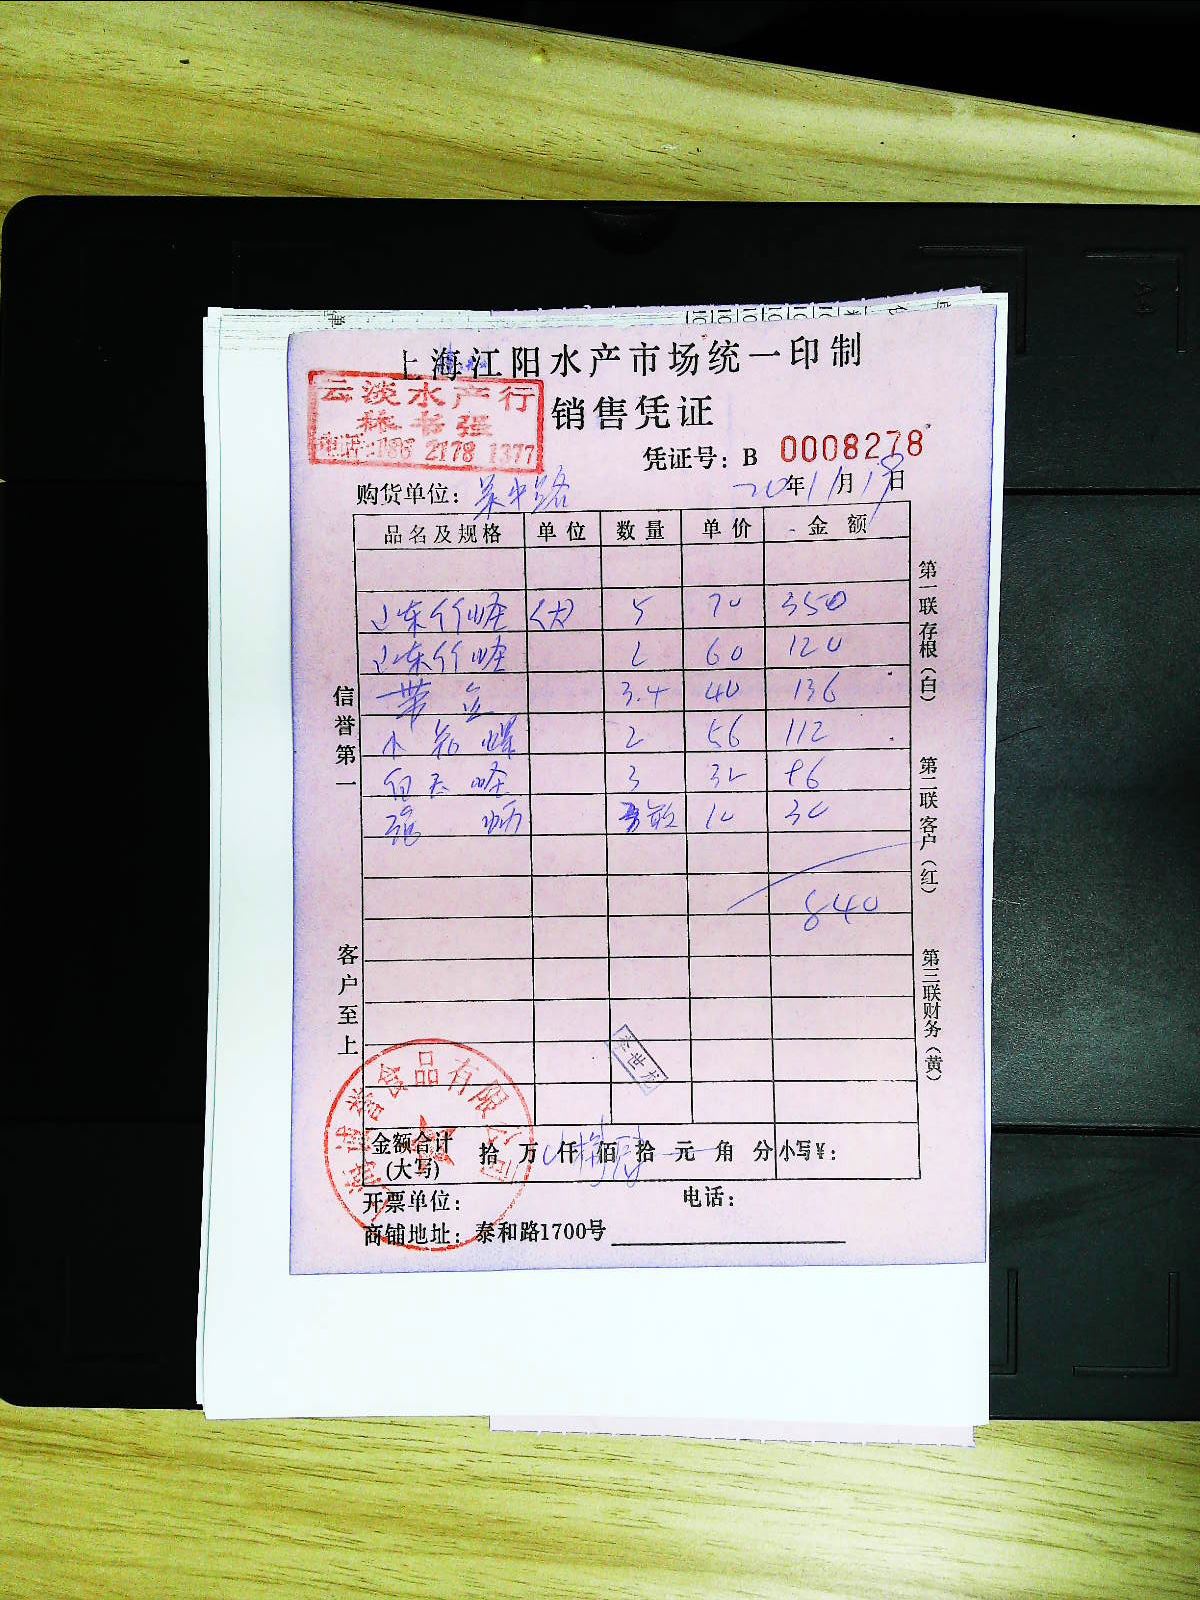 上海江阳水产市场统一印制
云淡水产行
林书强
电话:186 2178 1377
销售凭证
凭证号: B 0008278
购货单位: 吴中路
20年11月18日
品名及规格 单位 数量 单价 金额
山东竹蛏 (大) 5 70 350
山东竹蛏 2 60 120
带子 3.4 40 136
2 56 112
白玉蛏 3 32 96
10 30
840
信誉第一
客户至上
第一联 存根(白)
第二联 客户(红)
第三联 财务(黄)
食品有限公司
金额合计(大写) 拾 万 仟 佰 拾 元 角 分 小写¥:
开票单位: 电话:
商铺地址: 泰和路1700号